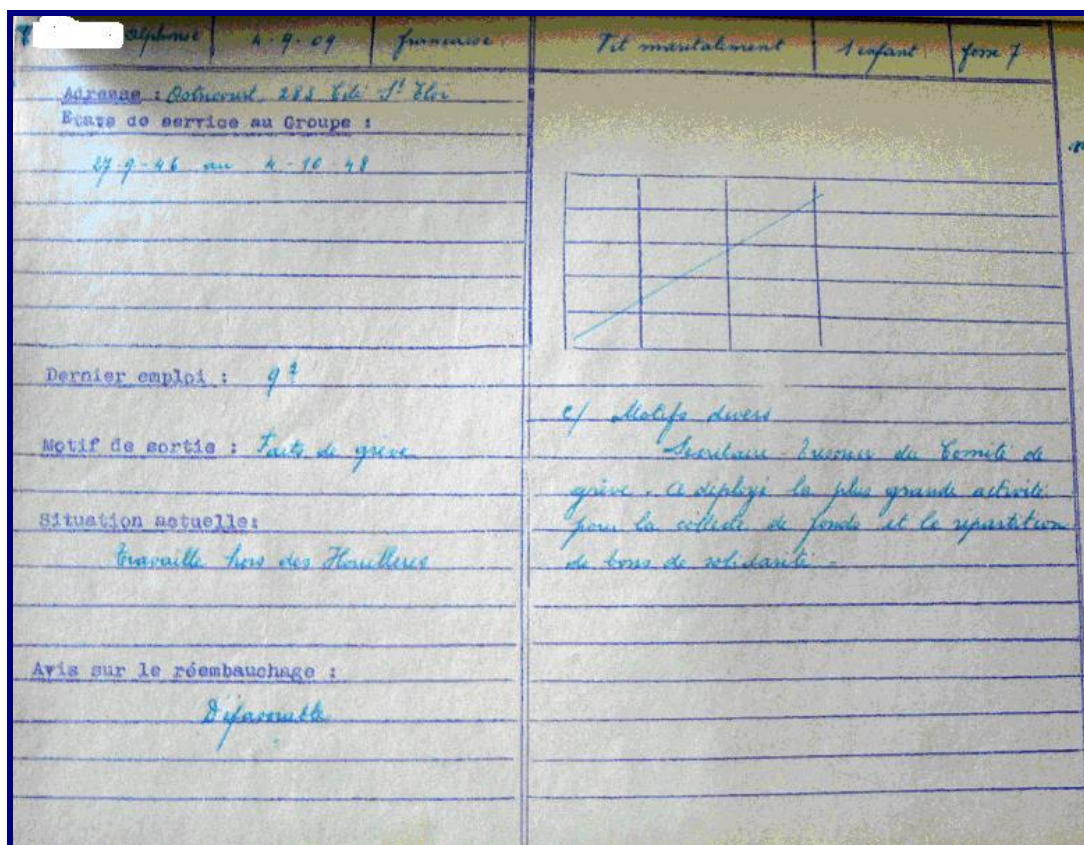 Alphonse 4-9-09 française Vit maritalement 1 enfant fosse 7
Adresse : Ostricourt, 288 Cité St Eloi
Etats de service au Groupe :
27-9-46 au 4-10-48
Dernier emploi :
Motif de sortie : Faits de grève
Situation actuelle:
Travaille hors des Houillères
Avis sur le réembauchage :
Défavorable
c/ Motifs divers
Secrétaire - Trésorier du Comité de
grève. A déployé la plus grande activité
pour la collecte de fonds et la répartition
de bons de solidarité -